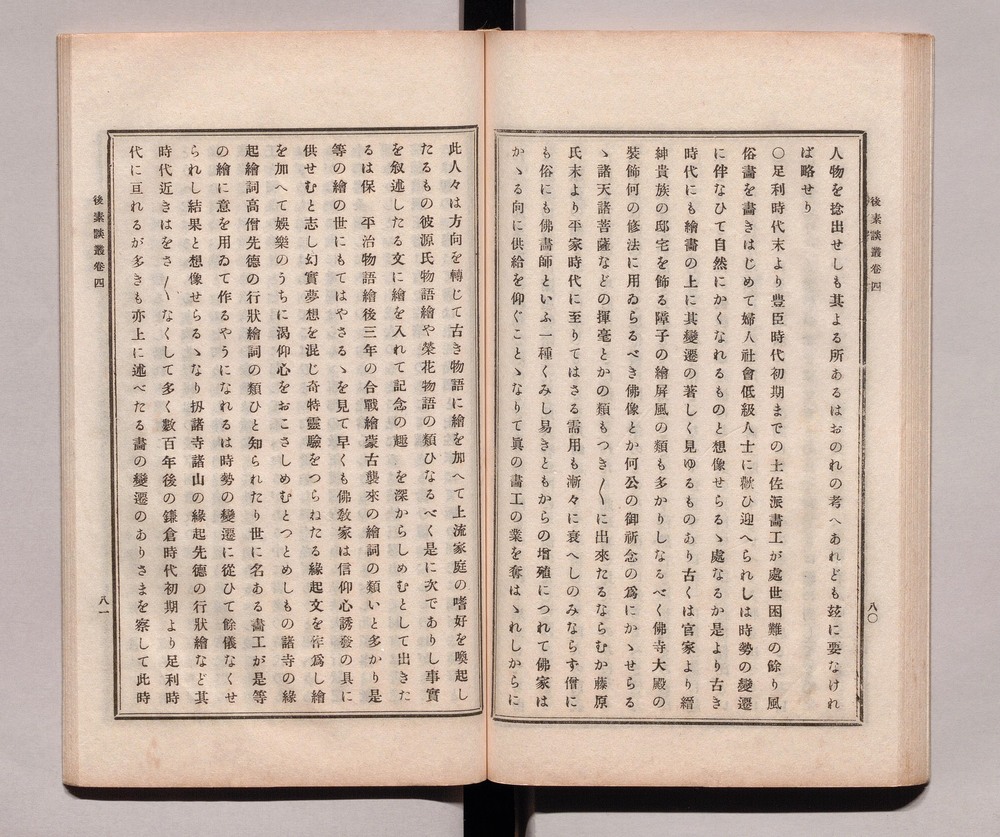 後素談叢卷四
八〇
人物を捻出せしも其よる所あるはおのれの考へあれども玆に要なけれ
ば略せり
〇足利時代末より豊臣時代初期までの土佐派畵工が處世困難の餘り風
俗畵を書きはじめて婦人社會低級人士に歡ひ迎へられしは時勢の變遷
に伴なひて自然にかくなれるものと想像せらるゝ處なるか是より古き
時代にも繪畵の上に其變遷の著しく見ゆるものあり古くは官家より縉
紳貴族の邸宅を飾る障子の繪屏風の類も多かりしなるべく佛寺大殿の
裝飾何の修法に用ゐらるべき佛像とか何公の御祈念の爲にかゝせらる
ゝ諸天諸菩薩などの揮毫とかの類もつき〳〵に出來たるならむか藤原
氏末より平家時代に至りてはさる需用も漸々に衰へしのみならす僧に
も俗にも佛畵師といふ一種くみし易きともからの增殖につれて佛家は
かゝる向に供給を仰ぐことゝなりて眞の畵工の業を奪はゝれしからに
此人々は方向を轉じて古き物語に繪を加へて上流家庭の嗜好を喚起し
たるもの彼源氏物語繪や榮花物語の類ひなるべく是に次でありし事實
を叙述したる文に繪を入れて記念の趣を深からしめむとして出きた
るは保平治物語繪後三年の合戰繪蒙古襲來の繪詞の類いと多かり是
等の繪の世にもてはやさるゝを見て早くも佛敎家は信仰心誘發の具に
供せむと志し幻實夢想を混じ奇特靈驗をつらねたる緣起文を作爲し繪
を加へて娛樂のうちに渴仰心をおこさしめむとつとめしもの諸寺の緣
起繪詞高僧先德の行狀繪詞の類ひと知られたり世に名ある畵工が是等
の繪に意を用ゐて作るやうになれるは時勢の變遷に從ひて餘儀なくせ
られし結果と想像せらるゝなり扨諸寺諸山の緣起先德の行狀繪など其
時代近きはをさ〳〵なくして多く數百年後の鎌倉時代初期より足利時
代に亘れるが多きも亦上に述べたる畵の變遷のありさまを察して此時
後素談叢卷四
八一